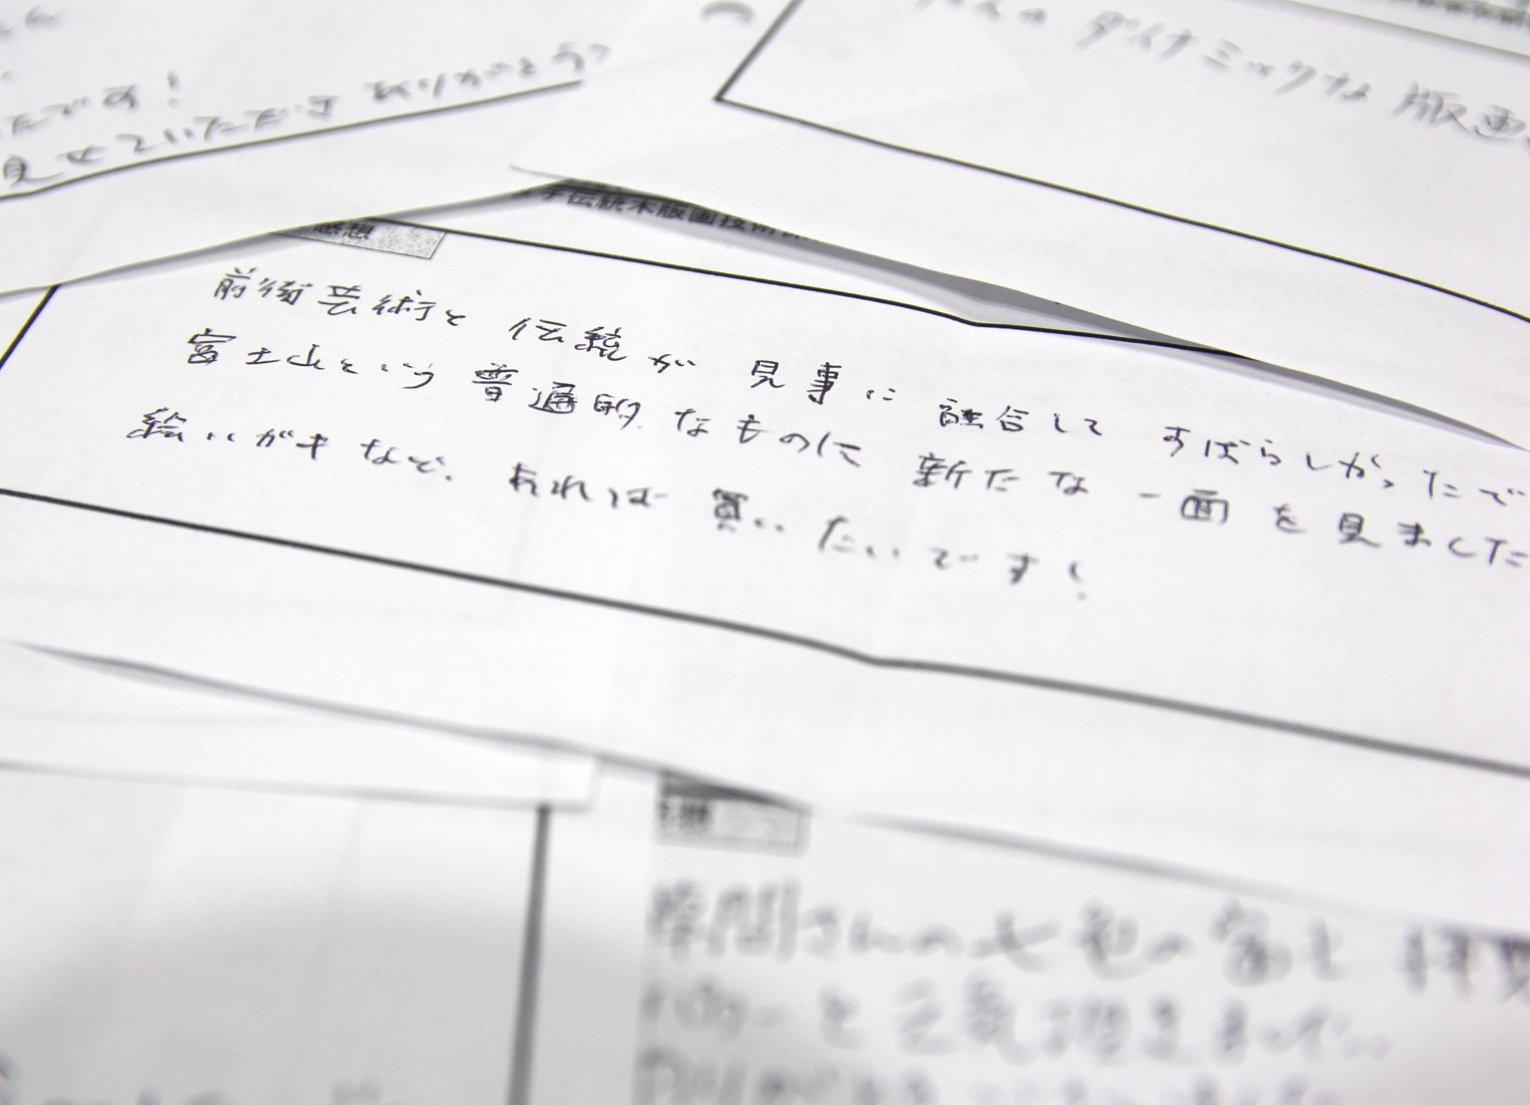 たです!
見せていただき ありがとう
ダイナミックな 版画
伝統木版画技術
感想
前衛芸術と 伝統が 見事に 融合して すばらしかったで
富士山という 普遍的なものに 新たな 一面を 見ました
絵ハガキなど、あれば 買いたいです!
草間さんの七色の富士 拝見
パワーと元気頂きました。